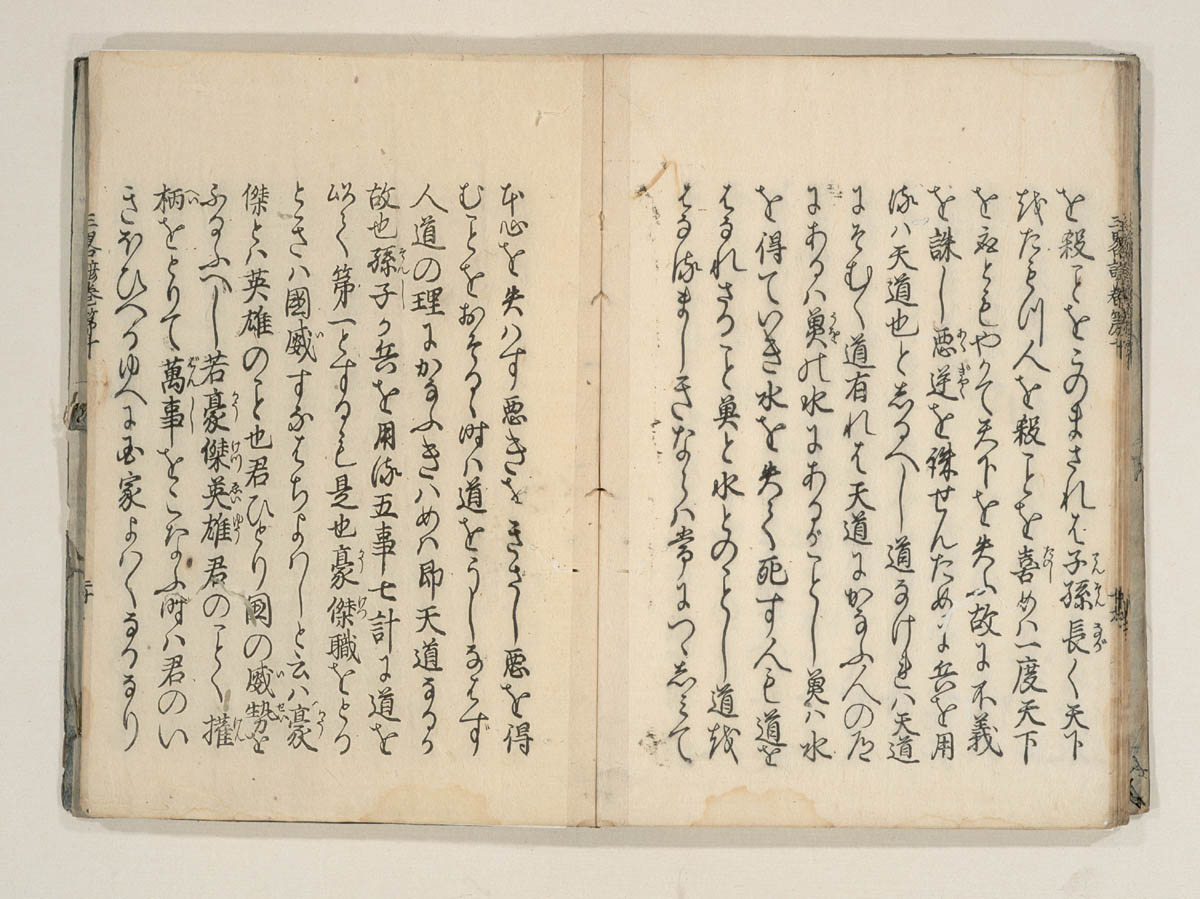 を殺ことをこのまされは子孫長く天下
をたもつ人を殺ことを喜めハ一度天下
を取ともやかて天下を失ふ故に不義
を誅し悪逆を誅せんために兵を用
るハ天道也としるへし道なけれハ天道
にそむく道有れは天道にかなふ人の道
にあるハ魚の水にあるがことし魚ハ水
を得ていき水を失て死す人も道を
はなれさること魚と水とのことし道を
はなるましきならハ常につゝしみて
本心を失ハす悪きをきさし悪を得
むことをおそる時ハ道をうしなはず
人道の理にかなふきハめハ即天道なるか
故也孫子か兵を用る五事七計に道を
以て第一とするも是也豪傑職をとる
ときハ國威すなはちよハしと云ハ豪
傑とハ英雄のこと也君ひとり國の威勢を
ふるふへし若豪傑英雄君のことく權
柄をとりて萬事をこなふ時ハ君のい
きほひへるゆへに国家よハくなるなり
三畧諺巻第十